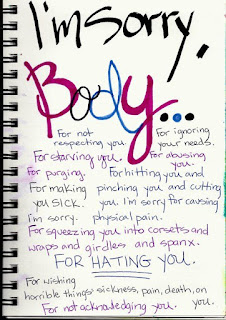 I'm sorry,
Body...
For not
respecting you.
For ignoring
your needs.
For starving you.
For abusing
you.
For purging.
For hitting you and
For making
you sick.
pinching you and cutting
you. I'm sorry for causing
I'm sorry.
physical pain.
For squeezing you into corsets and
wraps and girdles and spanx.
FOR HATING YOU.
For wishing
horrible things: sickness, pain, death, on
you.
For not acknowledging you.